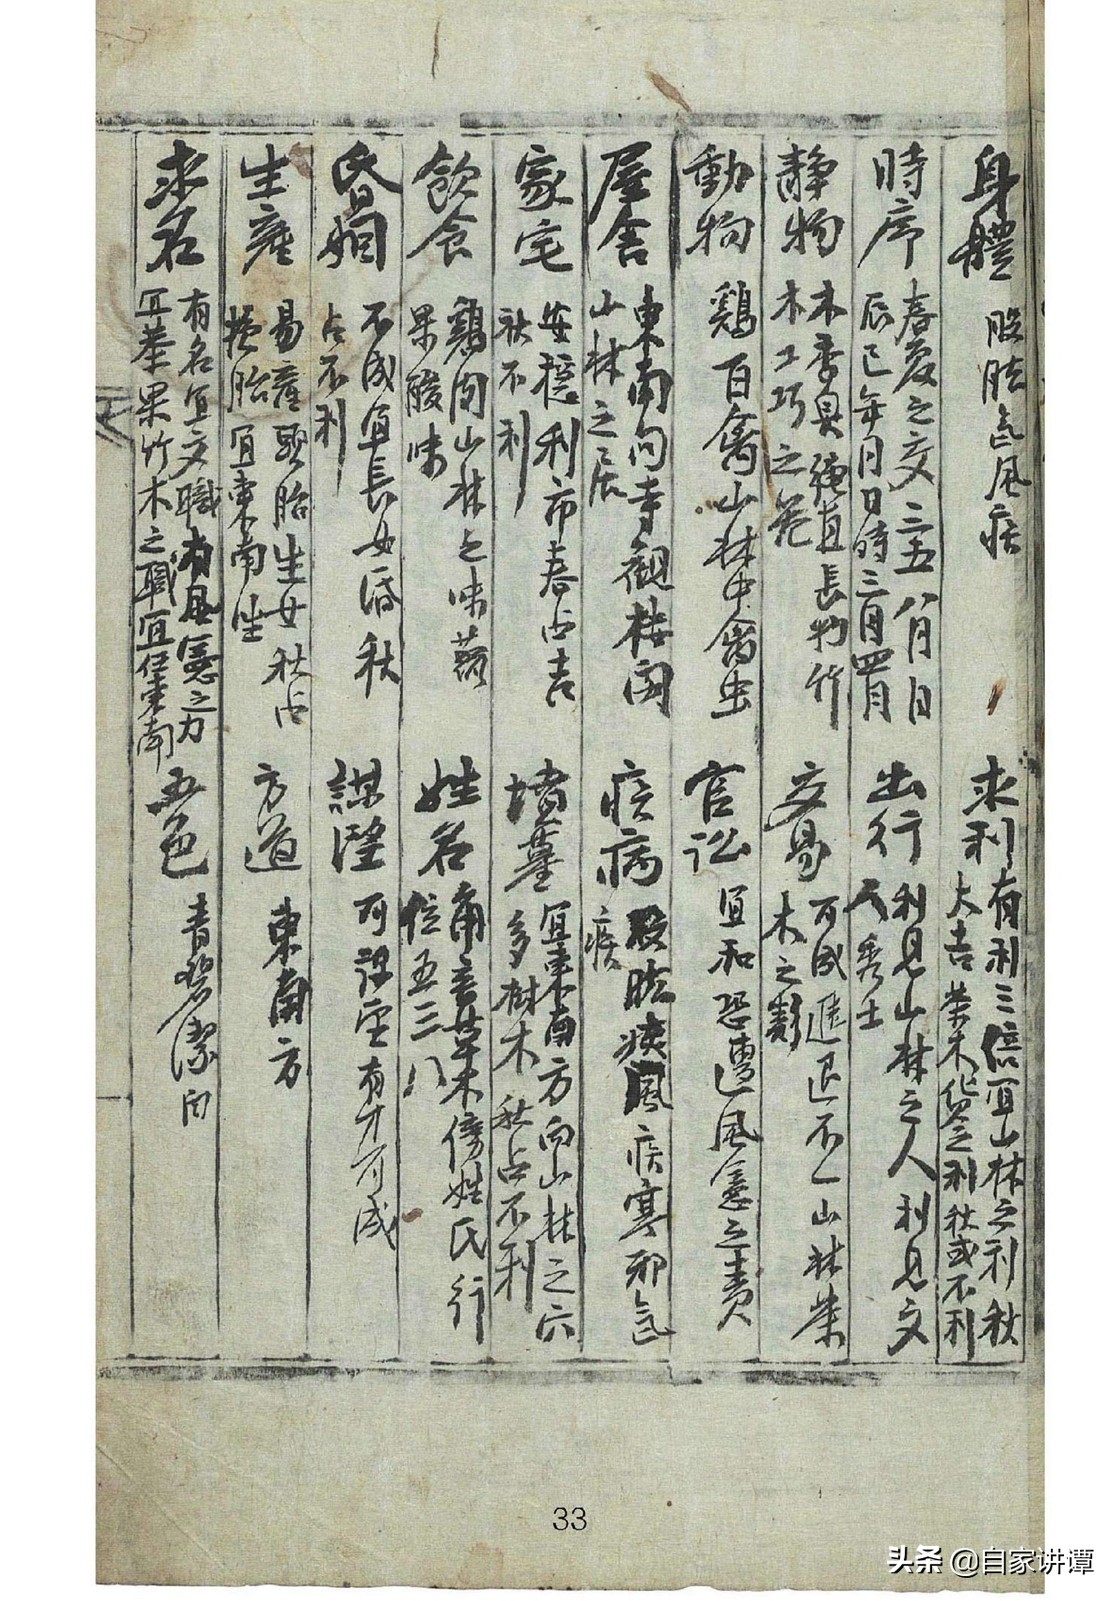 身體
股肱氣風疾
時序
春夏之交三五八月日
辰巳年月日時三月四月
靜物
木香臭繩直長物竹
木工巧之器
動物
鷄百禽山林中禽虫
屋舍
東南向寺觀楼閣
山林之居
家宅
安穩利市春占吉
秋不利
飲食
鷄肉山林之味蔬
果酸味
昏姻
不成宜長女昏秋
占不利
生產
易產頭胎生女秋占
損胎宜東南坐
求名
有名宜文職有風憲之力
宜茶果竹木之職宜任東南
求利
有利三倍宜山林之利秋
大吉茶木貨之利秋或不利
出行
利見山林之人利見文
人秀士
交易
可成進退不一山林茶
木之類
官訟
宜和恐遭風憲之責
疾病
股肱疾風疾寒邪氣
疾
墳墓
宜東南方向山林之穴
多樹木秋占不利
姓名
角音草木傍姓氏行
位五三八
謀望
可謀望有才可成
方道
東南方
五色
青碧潔白
33
头条 @自家讲谭